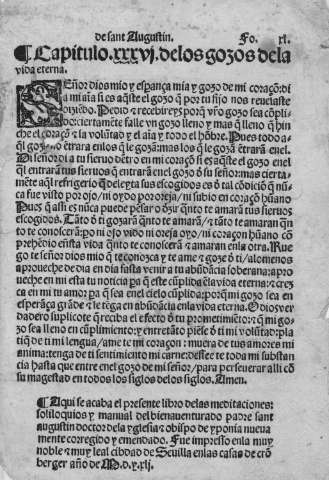 de sant Augustin. Fo. xl.
¶ Capitulo .xxxvj. delos gozos dela
vida eterna.
SEñor dios mio y esperança mia y gozo de mi coraçõ: di
a mi aĩa si es aq̃ste el gozo q̃ por tu fijo nos reuelaste
diziẽdo. Pedid & recebireys porq̃ vr̃o gozo sea cõpli-
do: ciertamẽte falle vn gozo lleno y mas q̃ lleno q̃ hin
che el coraçõ & la volũtad y el aĩa y todo el hõbre. Pues todo a-
q̃l gozo nõ ẽtrara enlos q̃ le gozã: mas los q̃ le gozã ẽtrarã enel.
Di señor di a tu sieruo dẽtro en mi coraçõ si es aq̃ste el gozo enel
q̃l entrarã tus sieruos q̃ entrarã enel gozo d̃ su señor: mas cierta-
mẽte aq̃l refrigerio q̃ deleyta sus escogidos es d̃ tal cõdiciõ q̃ nũ-
ca fue visto por ojo / ni oydo por oreja / ni subio en coraçõ hũano
Pues q̃ assi es nũca puede pẽsar o dzir quãto te amarã tus sieruos
escogidos. Tãto d̃ ti gozarã quãto te amarã / & tãto te amaran quã-
to te conoscerã: po ni ojo vido ni oreja oyo / ni coraçon hũano cõ
prehẽdio enesta vida quãto te conoscerã & amaran enla otra. Rue
go te señor dios mio q̃ te conozca y te ame & goze d̃ ti / alomenos
aproueche de dia en dia fasta venir a tu abũdãcia soberana: apro
ueche en mi esta tu noticia pa q̃ este cũplida ẽla vida eterna: & crez
ca en mi tu amor pa q̃ sea enel cielo cũplida: porq̃ mi gozo sea en
esperãça grãde & le tẽga en abũdãcia enla vida eterna. O dios ver
dadero suplicote q̃ reciba el efecto d̃ tu prometimiẽto: & q̃ mi go
zo sea lleno en cũplimiento: y entretãto piẽse d̃ ti mi volũtad: pla
tiq̃ de ti mi lengua / ame te mi coraçon: muera de tus amores mi
anima: tenga de ti sentimiento mi carne: dessee te toda mi substan
cia hasta que entre enel gozo de mi señor / para perseuerar alli cõ
su magestad en todos los siglos delos siglos. Amen.
¶ Aqui se acaba el presente libro delas meditaciones:
soliloquios y manual del bienauenturado padre sant
augustin doctor dela yglesia & obispo de yponia nueua
mente corregido y emendado. Fue impresso enla muy
noble y muy leal cibdad de Seuilla enlas casas de crõ
berger año de M.d.y.xlj.